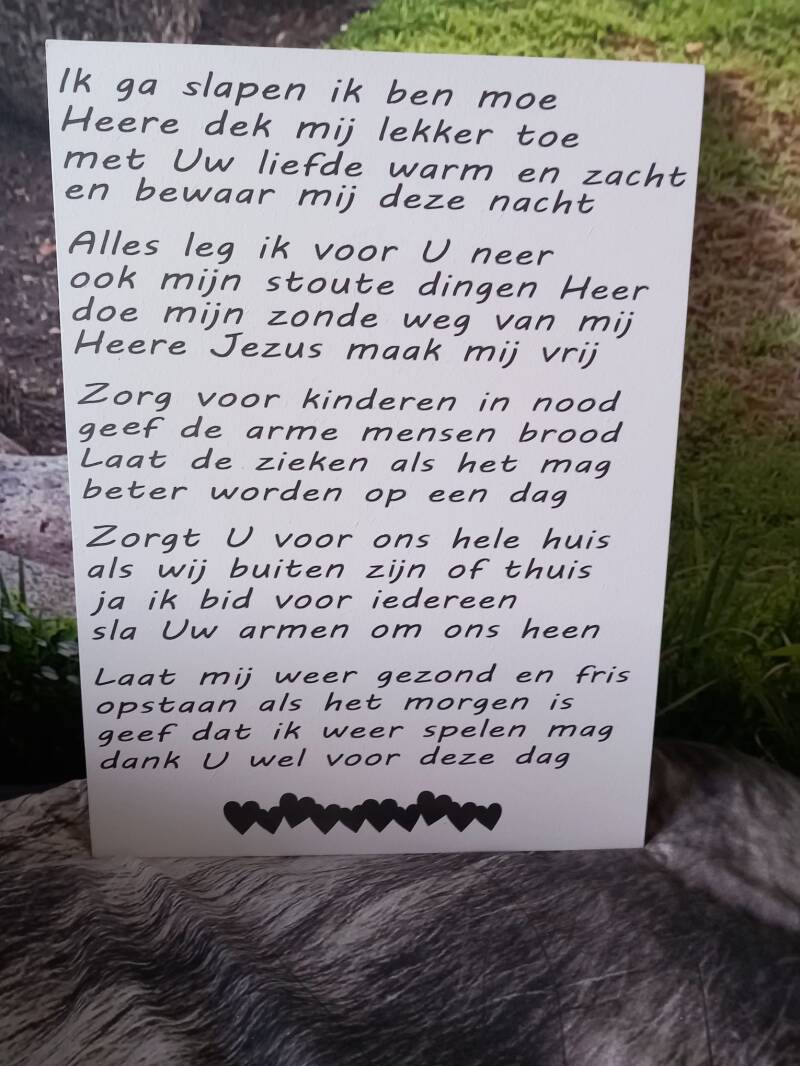 Ik ga slapen ik ben moe
Heere dek mij lekker toe
met Uw liefde warm en zacht
en bewaar mij deze nacht
Alles leg ik voor U neer
ook mijn stoute dingen Heer
doe mijn zonde weg van mij
Heere Jezus maak mij vrij
Zorg voor kinderen in nood
geef de arme mensen brood
Laat de zieken als het mag
beter worden op een dag
Zorgt U voor ons hele huis
als wij buiten zijn of thuis
ja ik bid voor iedereen
sla Uw armen om ons heen
Laat mij weer gezond en fris
opstaan als het morgen is
geef dat ik weer spelen mag
dank U wel voor deze dag